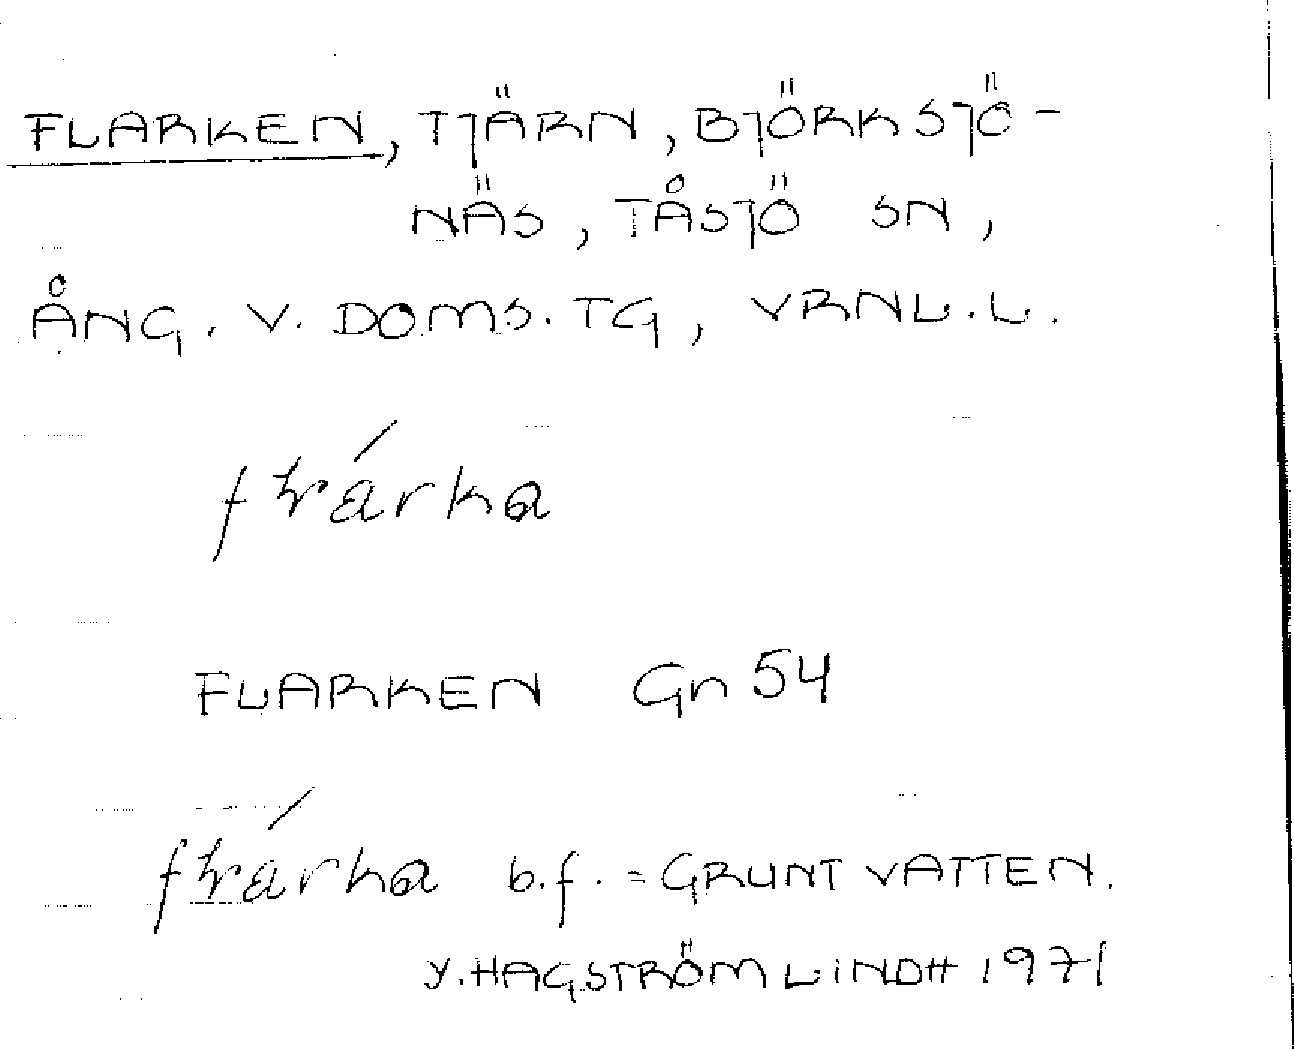 FLARKEN, TJÄRN, BJÖRKSJÖ-
NÄS, TÅSJÖ SN,
ÅNG. V. DOMS. TG, VRNL. L.
FLARKEN Gn 54
b.f. = GRUNT VATTEN.
Y. HAGSTRÖM LINDH 1971